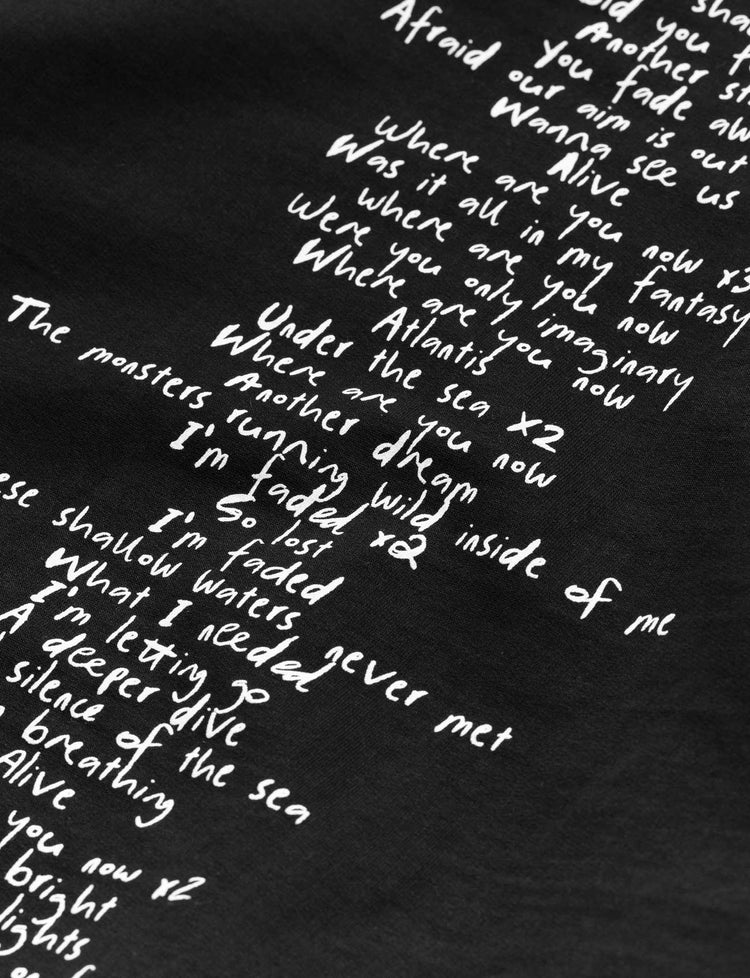 you
Another
You fade
Afraid our aim is out
Wanna see us
Alive
Where are you now x3
Was it all in my fantasy
Where are you now
Were you only imaginary
Where are you now
Atlantis
Under the sea x2
Where are you now
Another dream
The monsters running wild inside of me
I'm faded x2
So lost
I'm faded
shallow waters never met
What I needed
I'm letting go
A deeper dive
silence of the sea
breathing
Alive
you now x2
bright
lights